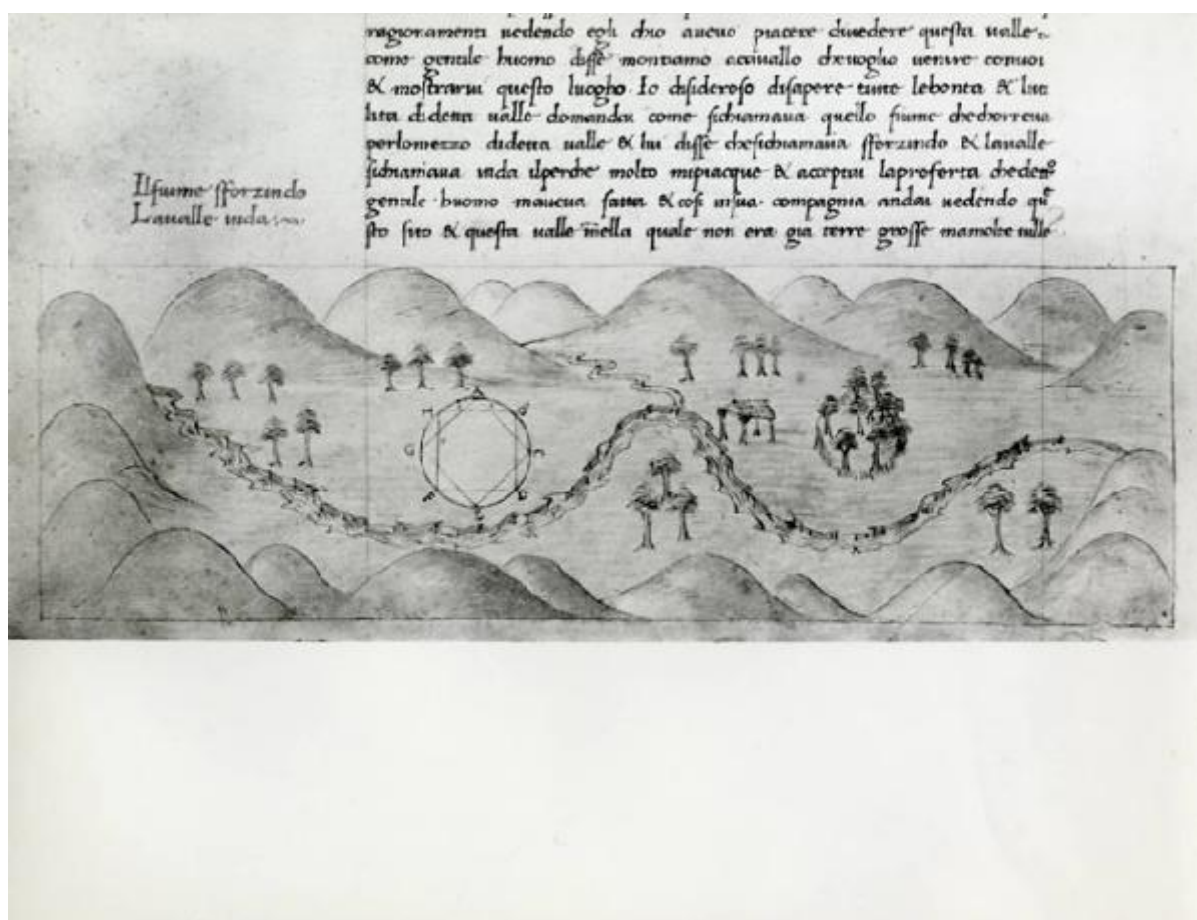 ragionamenti uedendo egli chio aueuo piacere diuedere questa ualle
come gentile huomo disse montiamo acauallo cheuoglio uenire conuoi
& mostrarui questo luogho. Io disideroso disapere tutte lebonta &
lita didetta ualle domandai come sichiamaua quello fiume chechorreua
perlomezzo didetta ualle & lui disse chesichiamaua sforzindo & laualle
sichiamaua inda ilperche molto mipiacque & acceptai laproferta
gentile huomo maueua fatta & cosi insua compagnia andai uedendo
sto sito & questa ualle nella quale non era gia terre grosse mamolte uille
Ilfiume sforzindo
Laualle inda